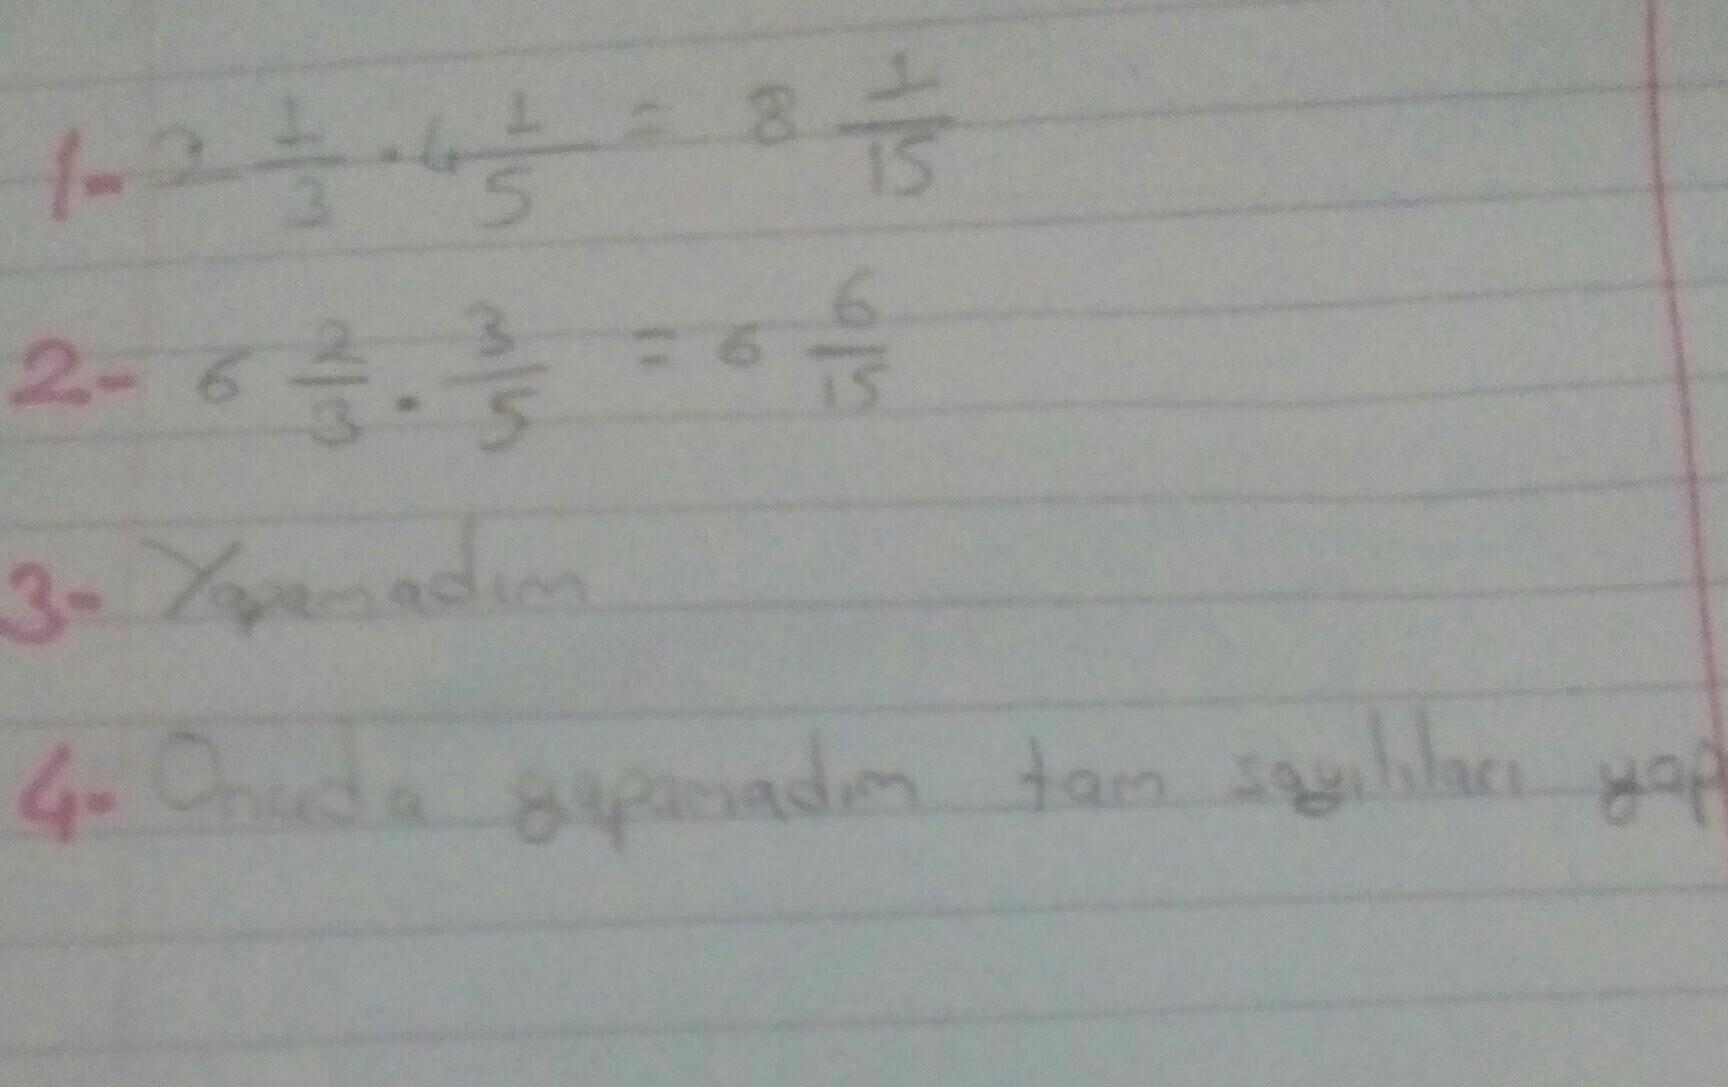 1- 2 1/3 · 4 1/5 = 8 1/15
2- 6 2/3 · 3/5 = 6 6/15
3- Yapamadım
4- Onuda yapamadım tam sayılıları yap